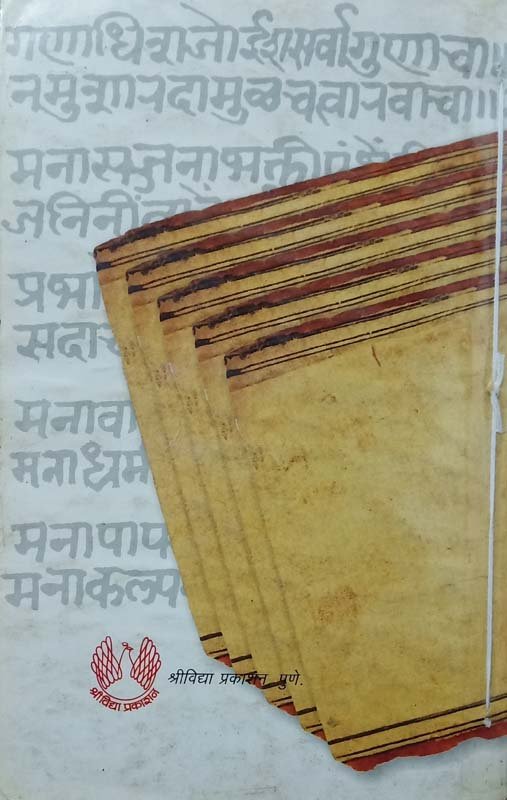 गणाधिशजोईशसर्वागुणाचा॥
नमुशारदामुळचत्वारवाचा॥
मनासज्जनाभक्तीपंथें
जनिनीं
प्रभा
सदाच
मनावा
मनाध्रम
मनापाप
मनाकल्प
श्रीविद्या प्रकाशन पुणे.
श्रीविद्या प्रकाशन